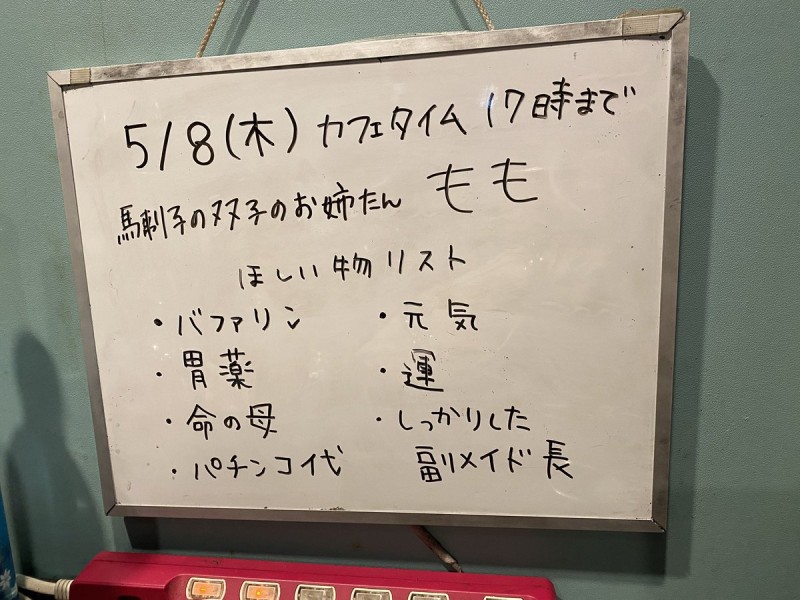 5/8(木) カフェタイム 17時まで
馬刺子の双子のお姉たん もも
ほしい物リスト
・バファリン
・胃薬
・命の母
・パチンコ代
・元気
・運
・しっかりした
副メイド長